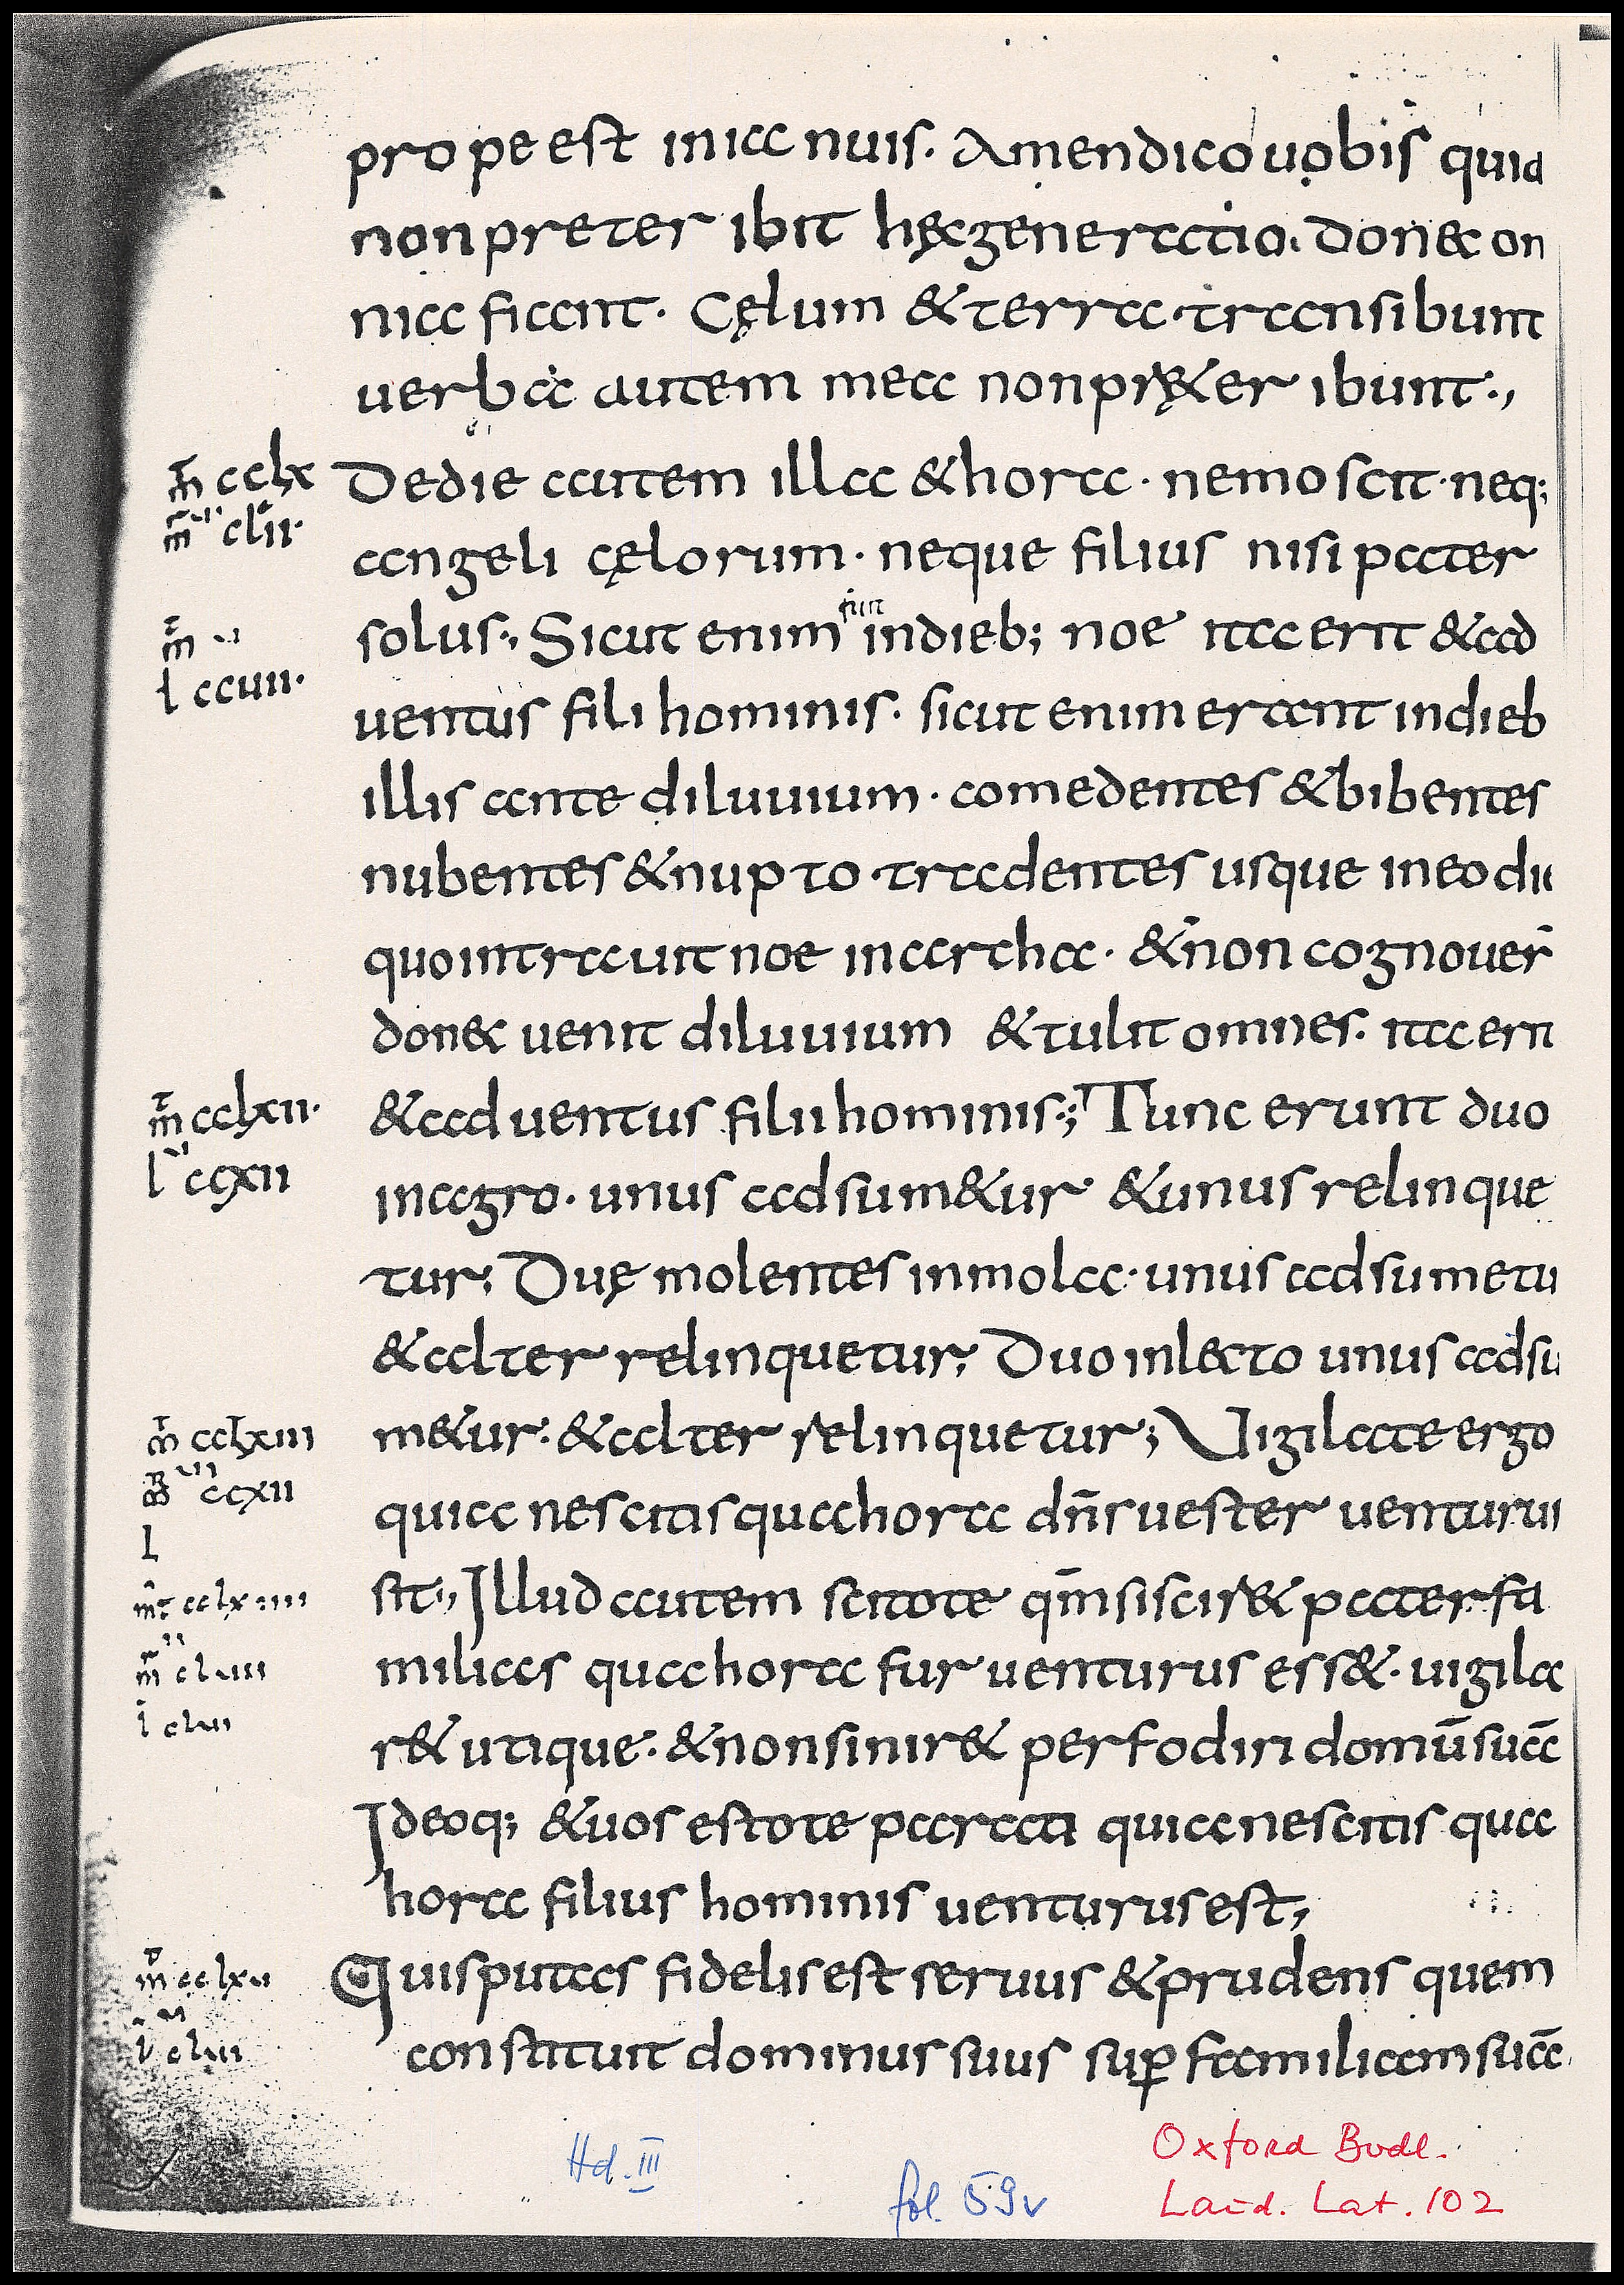 prope est in ianuis. Amen dico uobis quia
non preter ibit hęc generatio. donec om
nia fiant. Cęlum & terra transibunt
uerba autem mea non prę&er ibunt.,
m̄ cclx De die autem illa & hora. nemo scit. neq;
m̄ clii. angeli cęlorum. neque filius nisi pater
m̄ solus., Sicut enim fuit in dieb; noe ita erit & ad
l ccuii. uentus fili hominis. sicut enim erant in dieb
illis ante diluuium. comedentes & bibentes
nubentes & nupto tradentes usque in eo die
quo intrauit noe in archa. & non cognouer̄
donec uenit diluuium & tulit omnes. ita erit
m̄ cclxii. & aduentus filii hominis.; Tunc erunt duo
l ccxii in agro. unus adsum&ur & unus relinque
tur; Duę molentes in mola. unus adsumetu
& alter relinquetur; Duo in lecto unus adsu
m̄ cclxiii m&ur. & alter relinquetur; Uigilate ergo
ccxii quia nescitis qua hora dn̄s uester uenturus
l
m̄ cclxiiii sit., Illud autem scitote qm̄ si scir& pater fa
m̄ clviii milias qua hora fur uenturus ess&. uigila
l clvii r& utique. & non sinir& perfodiri domū suā
Ideoq; & uos estote parati quia nescitis qua
hora filius hominis uenturus est,
m̄ cclxv Quis putas fidelis est seruus & prudens quem
l clvii constituit dominus suus suꝑ familiam suā
Hd. III
fol. 59v
Oxford Bodl.
Laud. Lat. 102